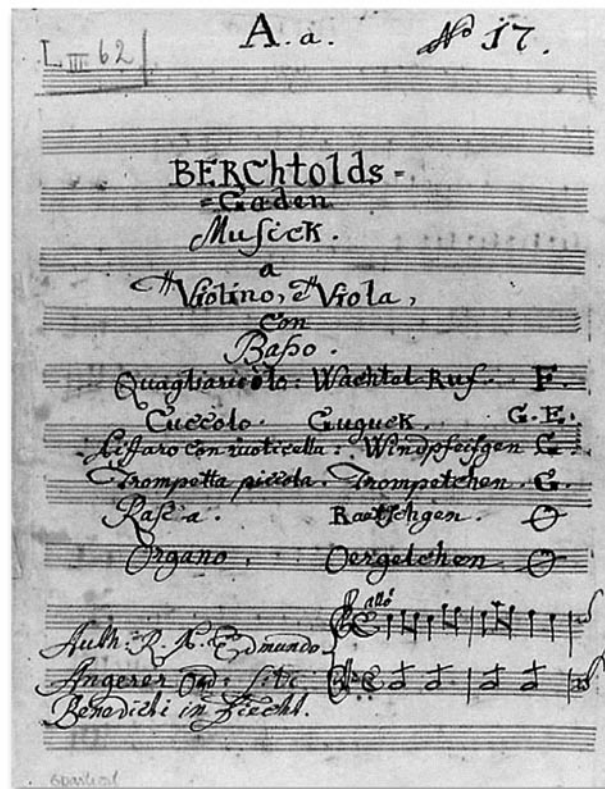 L III 62
A. a. No 17.
BERChtolds =
= Gaden
Musick.
a
Violino, e Viola,
con
Baßo.
Quagliaricolo: Wachtel-Ruf. F.
Cuccolo. Guguck. G. E.
Liffaro con ruoticella: Windpfeifgen G.
Trompetta piccola. Trompetchen. G.
Rasca. Raetschgen.
Organo. Oergelchen
allo
Auth: R. P. Edmundo
Angerer Ord: Sti:
Benedicti in Fiecht.